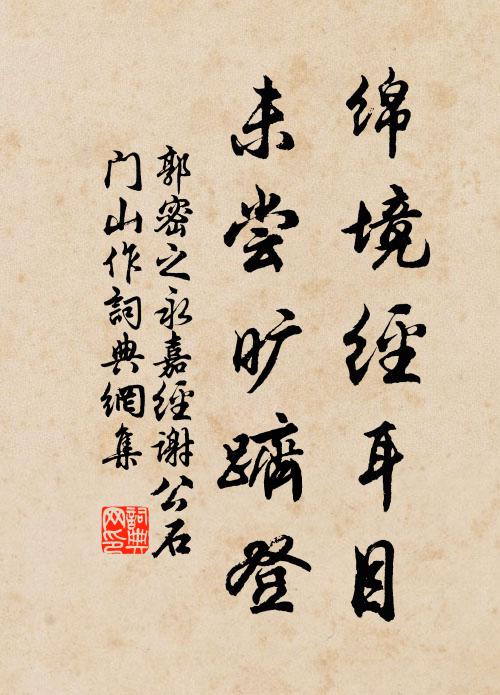 绵境經耳目
未尝旷躋登
郭密之永嘉經谢公石
门山作詞典網集
詞典网印